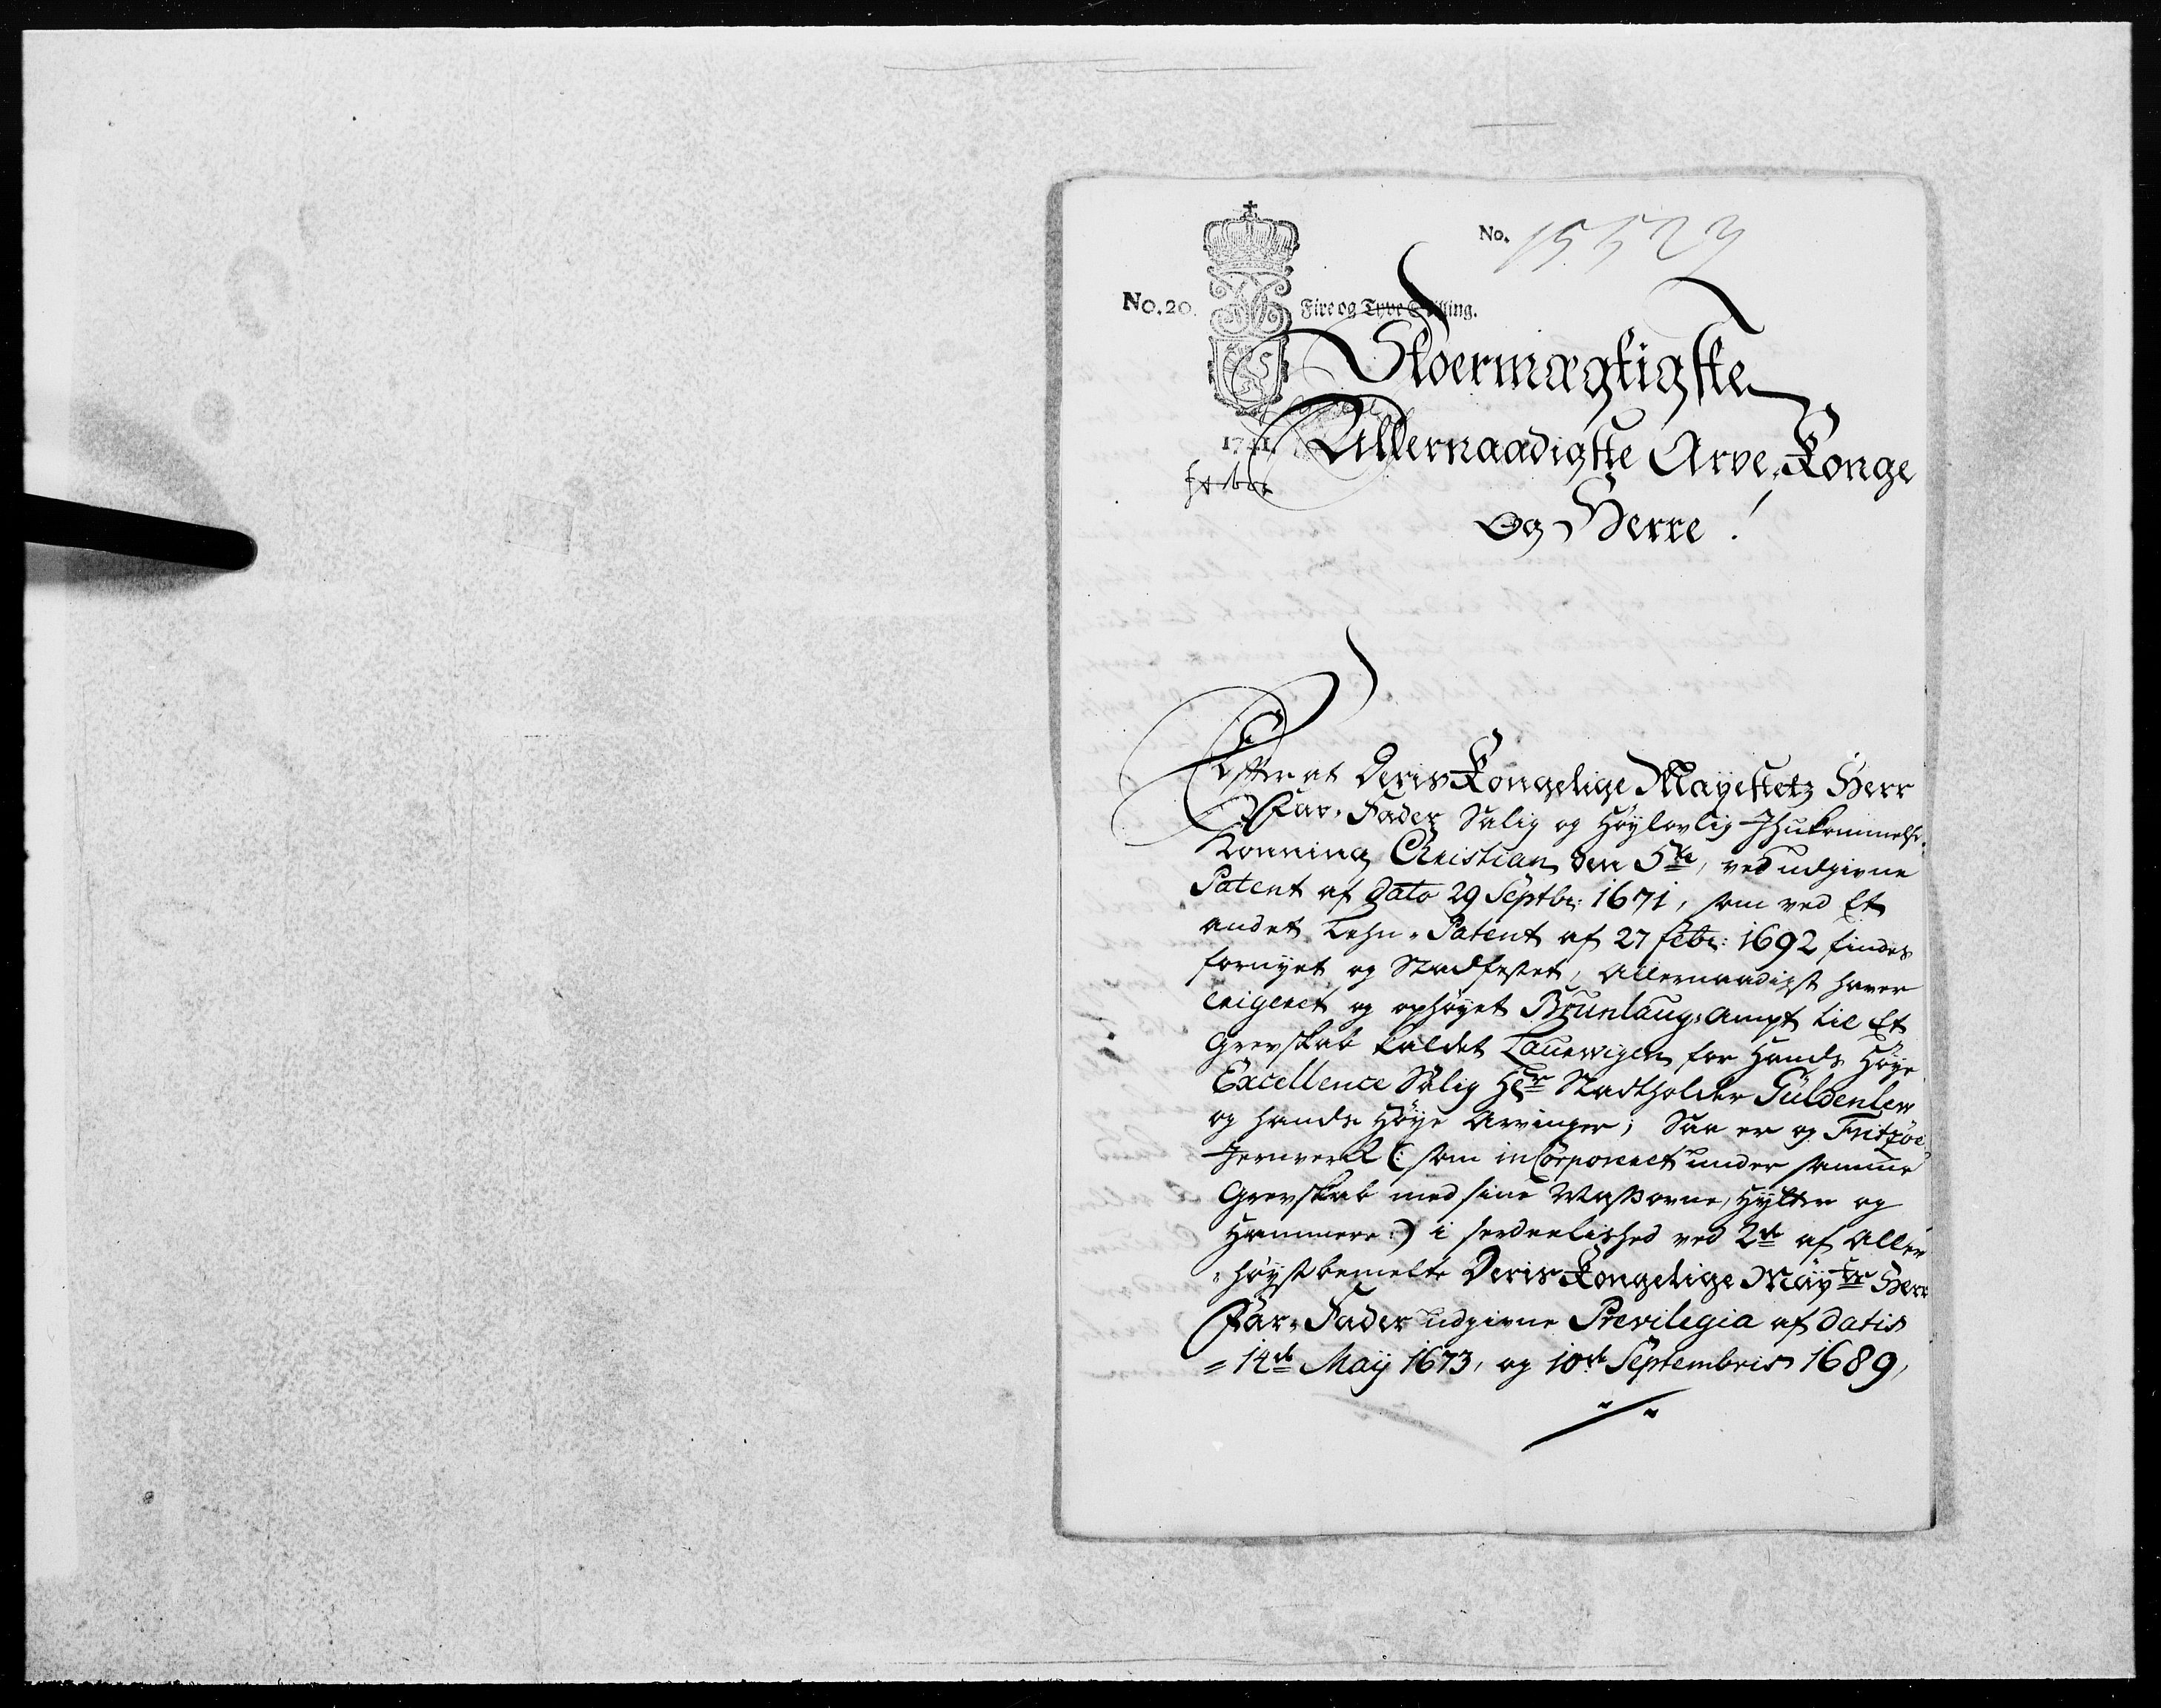 No. 15523
No. 20. Fire og Tyve Skilling.
Stoermægtigste
1741. Allernaadigste Arve-Konge
Og Herre!
Efter at Deris Kongelige Mayestetz Herr
Far-Fader Salig og Høylovlig Ihukommelse,
Konning Christian den 5te, ved udgivne
Patent af Dato 29 Septbr: 1671, som ved Et
andet Lehn-Patent af 27 febr: 1692 findes
fornyet og Stadfestet, Allernaadigst haver
erigeret og ophøyet Brunlaugs Ampt til Et
Grevskab kaldet Laurwigen for Hands Høye
Excellence Salig Hr Stadtholder Güldenlew
og hands Høye Arvinger; Saa er og Fritzøe
Jernverk (: som incorporeret under samme
Grevskab med sine Masovne, Hytter og
Hammere:) i serdeelished ved 2de af Aller
høystbemelte Deris Kongelige Mäytz Herr
Far-Fader udgivne Previlegia af Datis
14de Maij 1673, og 10de Septembris 1689,